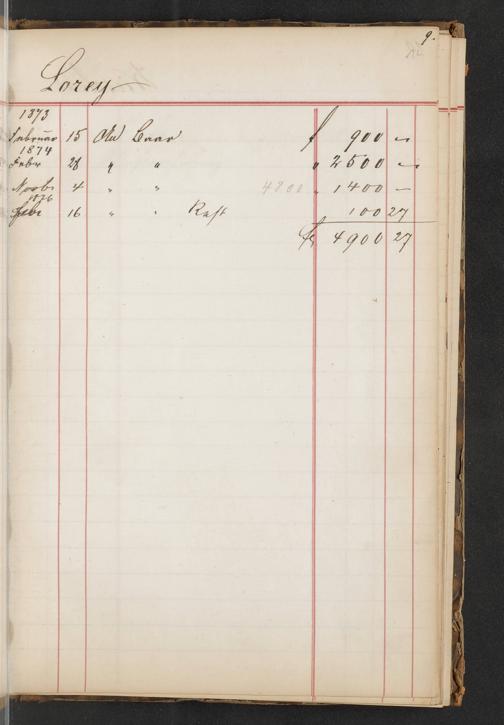 9.
Lorey
1873
Februar 15 An Baar f 900 –
1874
Febr 28 " " " 2500 –
Novbr 4 " " 4800 " 1400 –
1876
Febr 16 " " Rest 100 27
fr 4900 27